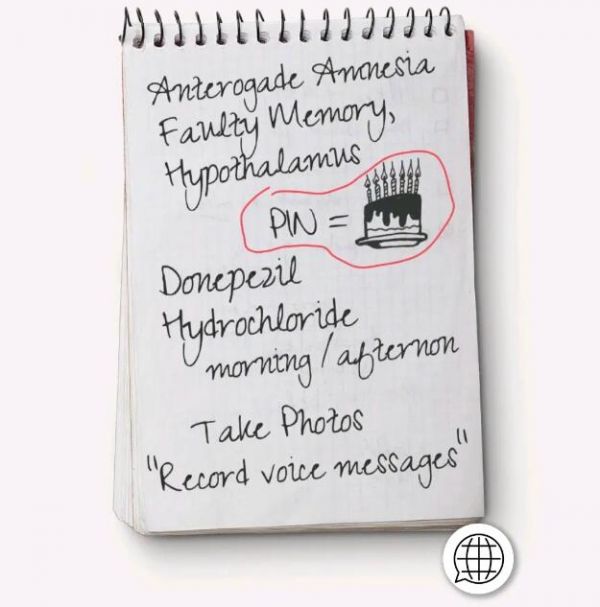 Anterogade Amnesia
Faulty Memory,
Hypothalamus
PIN =
Donepezil
Hydrochloride
morning / afternon
Take Photos
"Record voice messages"